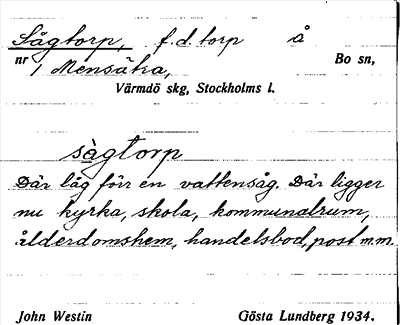 Sågtorp, f.d. torp å
nr 1 Mensäka, Bo sn,
Värmdö skg, Stockholms l.
sågtorp
Där låg förr en vattensåg. Där ligger
nu kyrka, skola, kommunalrum,
ålderdomshem, handelsbod, post m.m.
John Westin Gösta Lundberg 1934.